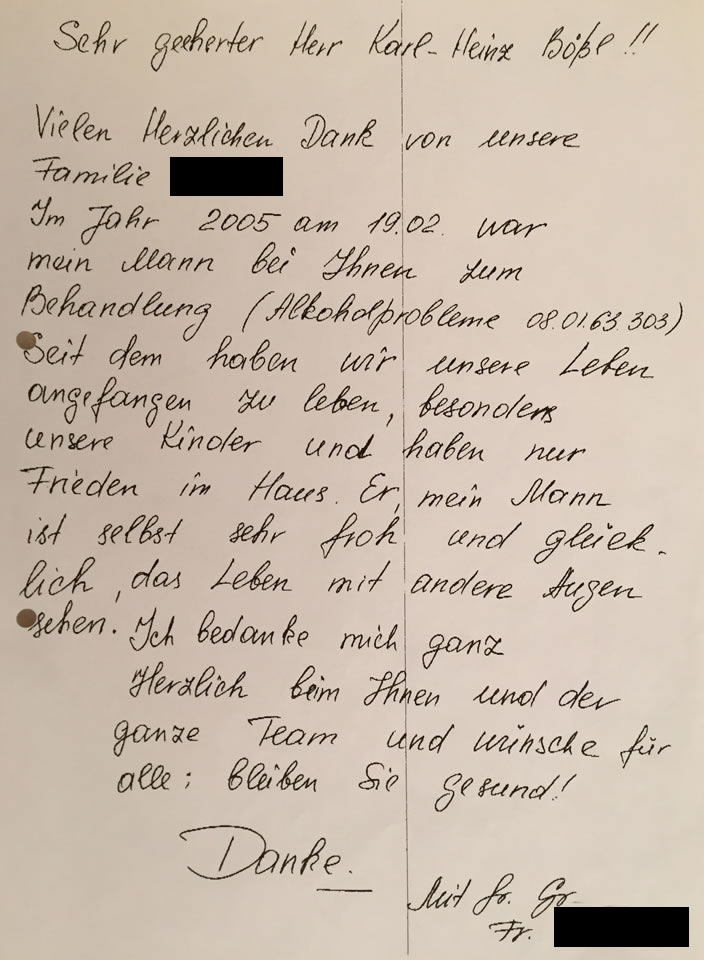 Sehr geeherter Herr Karl-Heinz Bößl!!
Vielen Herzlichen Dank von unsere
Familie
Im Jahr 2005 am 19.02. war
mein Mann bei Ihnen zum
Behandlung (Alkoholprobleme 08.01.63.303)
Seit dem haben wir unsere Leben
angefangen zu leben, besonders
unsere Kinder und haben nur
Frieden im Haus. Er, mein Mann
ist selbst sehr froh und glück-
lich, das Leben mit andere Augen
sehen. Ich bedanke mich ganz
Herzlich beim Ihnen und der
ganze Team und wünsche für
alle: bleiben Sie gesund!
Danke.
Mit fr. Gr.
Fr.